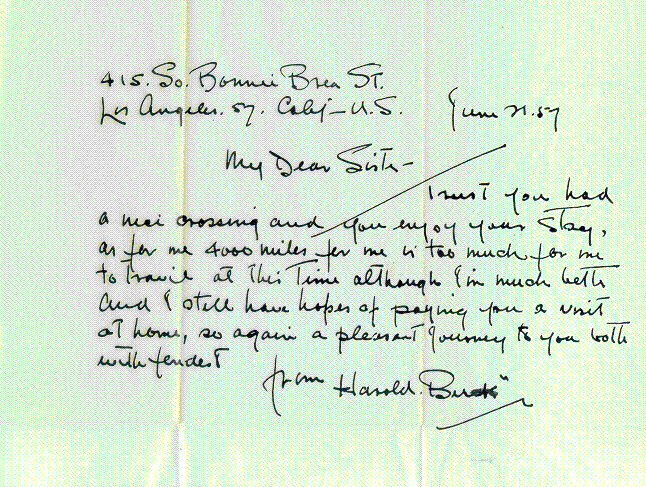 415. So. Bonnie Brea St.
Los Angeles. 57. Calif - U.S. June 21.57
My Dear Sister -
Trust you had
a nice crossing and you enjoy your stay,
as for me 4000 miles for me is too much for me
to travil at this Time although I'm much better
and I still have hopes of paying you a visit
at home, so again a pleasant journey to you both
with fendest
from Harold. Buck"